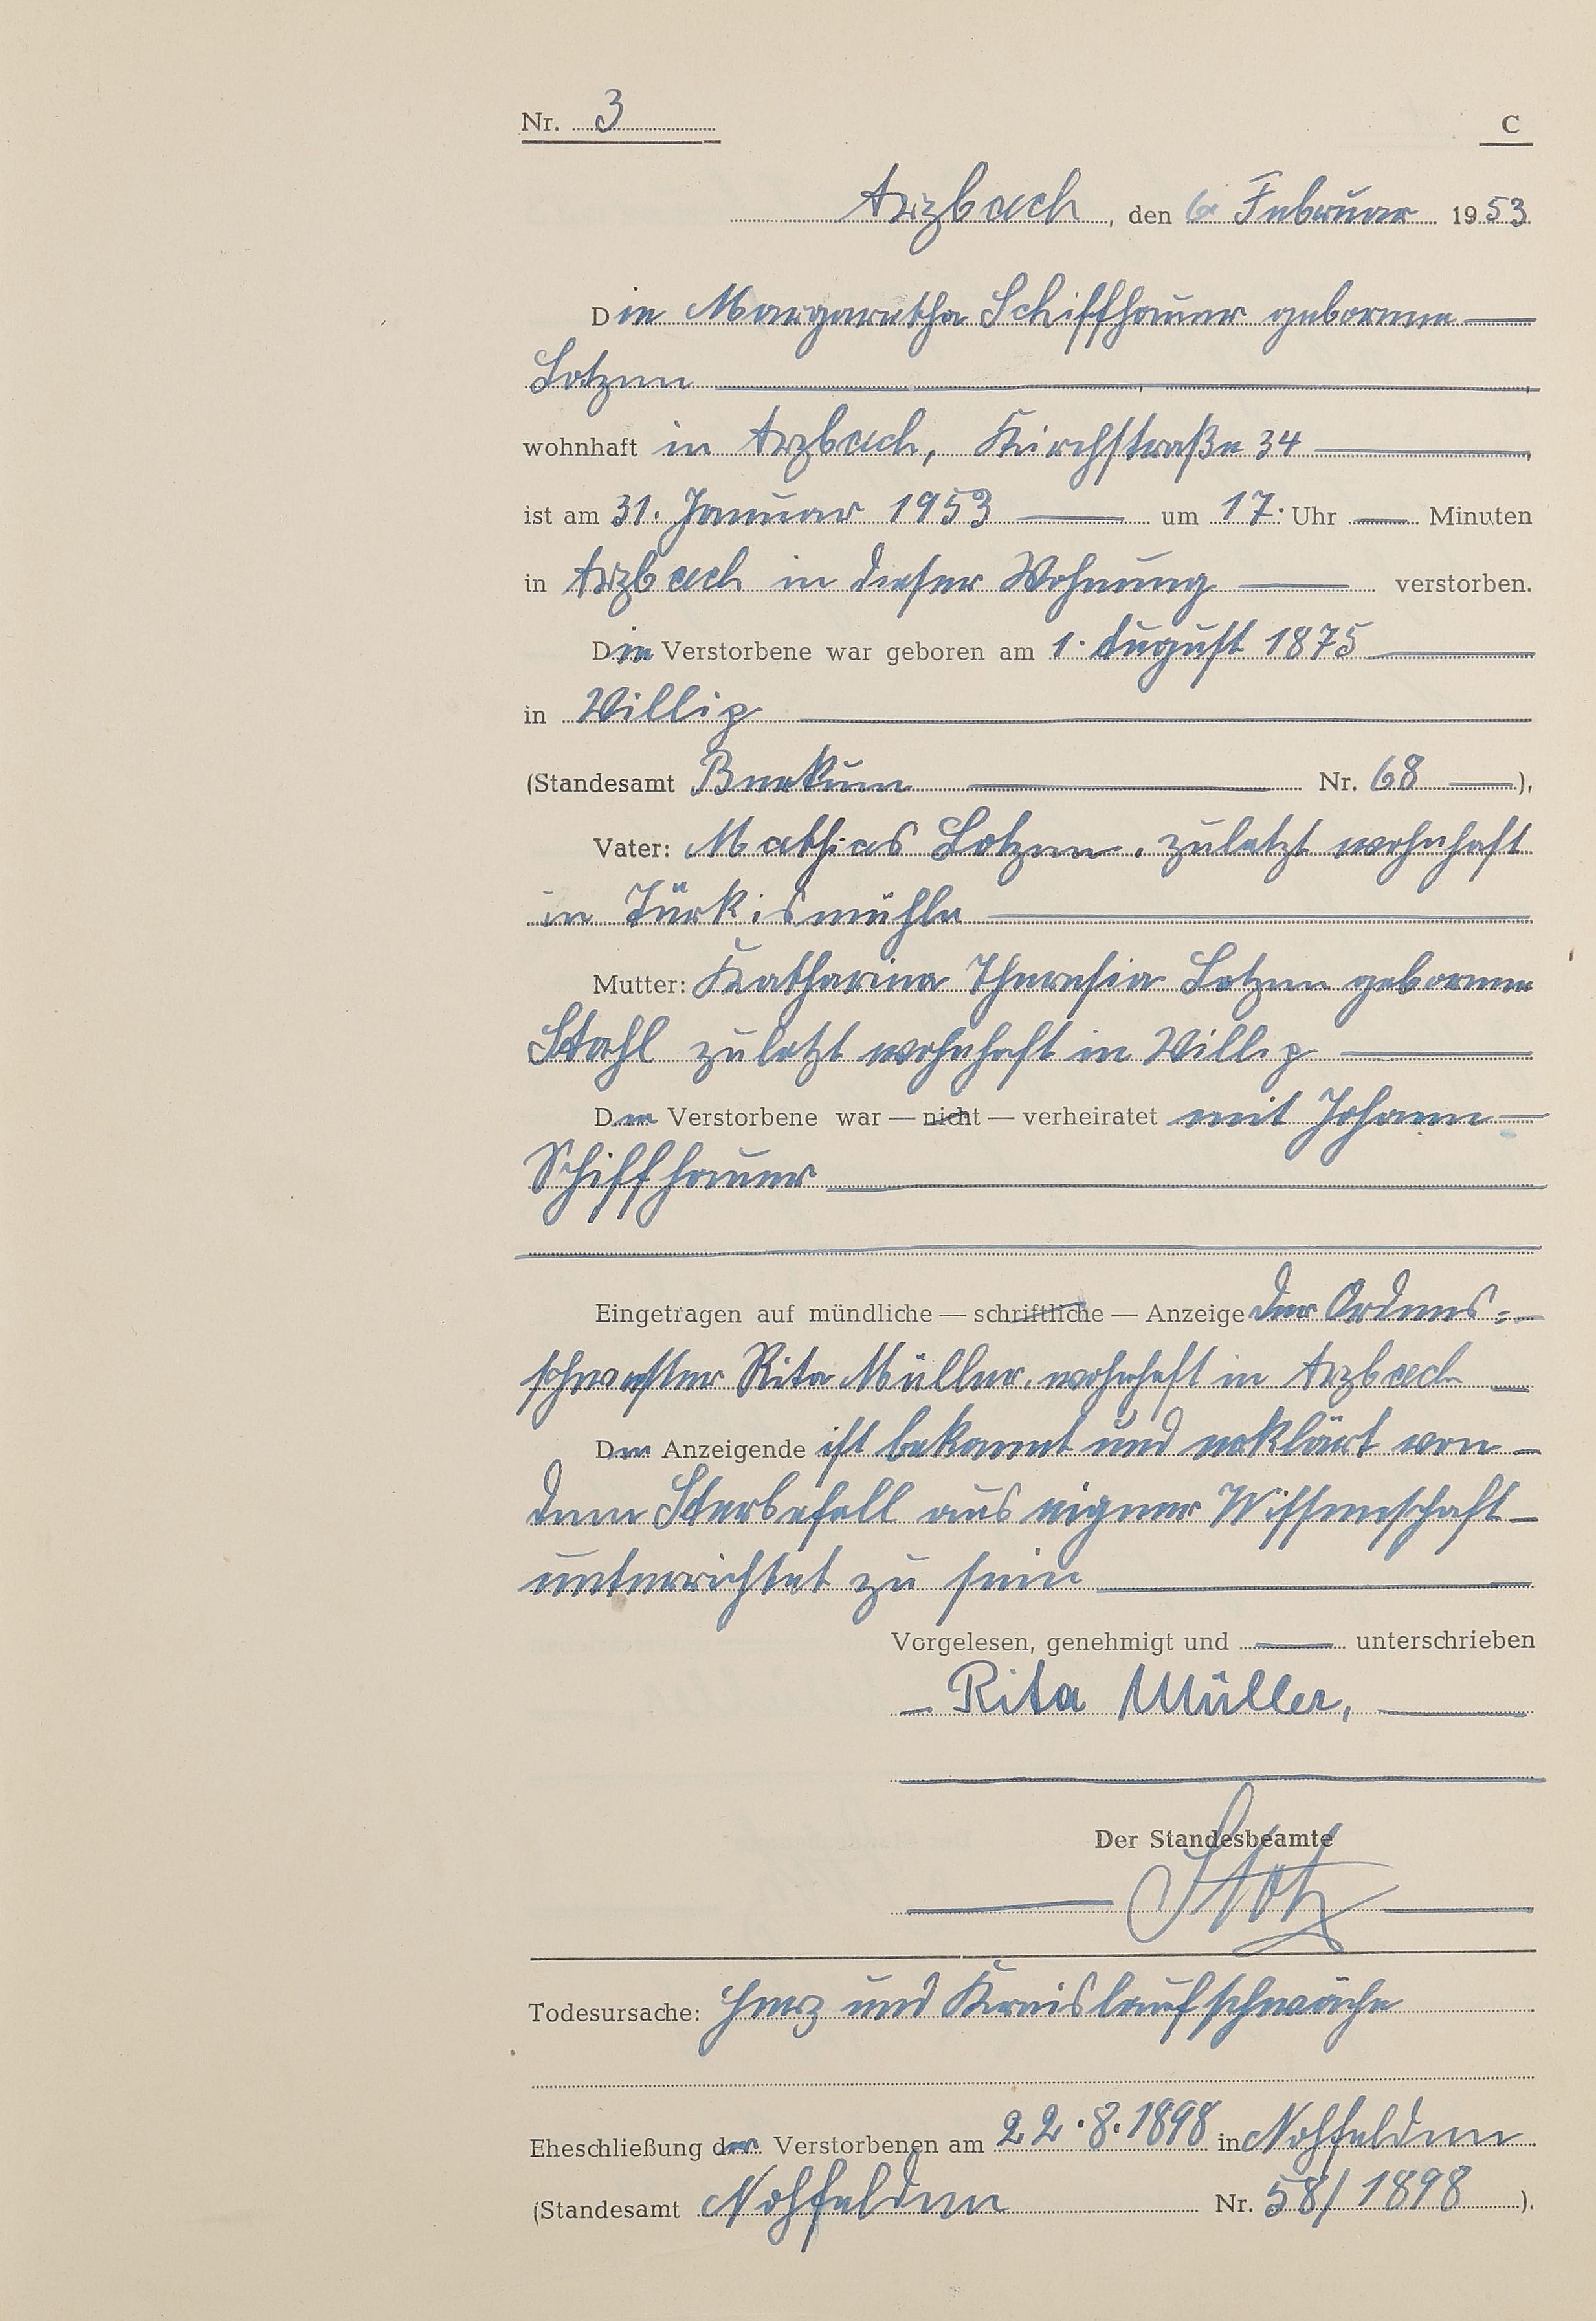 Nr. 3
C
Arzbach, den 6. Februar 1953
Die Margaretha Schiffhauer geborene
Lotzen
wohnhaft in Arzbach, Kirchstraße 34
ist am 31. Januar 1953 um 17 Uhr Minuten
in Arzbach in dieser Wohnung verstorben.
Die Verstorbene war geboren am 1. August 1875
in Villip
(Standesamt Berkum Nr. 68),
Vater: Mathias Lotzen, zuletzt wohnhaft
in Türkismühle
Mutter: Katharina Theresia Lotzen geborene
Stahl zuletzt wohnhaft in Villip
Die Verstorbene war — nicht — verheiratet mit Johann
Schiffhauer
Eingetragen auf mündliche — schriftliche — Anzeige der Ordens-
schwester Rita Müller, wohnhaft in Arzbach
Die Anzeigende ist bekannt und erklärt von
dem Sterbefall aus eigner Wissenschaft
unterrichtet zu sein
Vorgelesen, genehmigt und unterschrieben
Rita Müller,
Der Standesbeamte
Stotz
Todesursache: Herz und Kreislaufschwäche
Eheschließung der Verstorbenen am 22.8.1898 in Nohfelden
(Standesamt Nohfelden Nr. 58/1898).